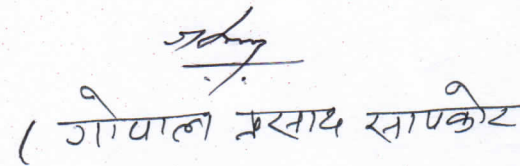 ( गोपाल प्रसाद सापकोट